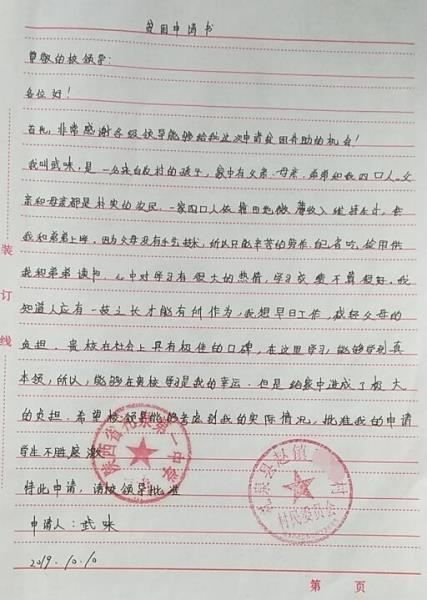 贫困申请书
尊敬的校领导:
各位好!
首先,非常感谢各级领导能够给我这次申请贫困补助的机会!
我叫武咪,是一名来自农村的孩子,家中有父亲、母亲、弟弟和我四口人,父
亲和母亲都是朴实的农民,一家四口人依靠田地微薄收入维持生计,供
我和弟弟上学,因为父母没有手艺技术,所以只能辛苦的劳作,自己省吃俭用供
我和弟弟读书 心中对学习有很大的热情,学习成绩不算很好,我
知道人应有一技之长才能有所作为,我想早日工作,减轻父母的
负担。贵校在社会上具有极佳的口碑,在这里学习,能够学到真
本领,所以,能够在贵校学习是我的幸运。但是给家中造成了极大
的负担,希望校领导批的考虑到我的实际情况,批准我的申请
学生不胜感激
特此申请,请校领导批准
申请人:武咪
2019.10.10
陕西省礼泉第一中学
礼泉县赵镇 村
村民委员会
装
订
线
第 页